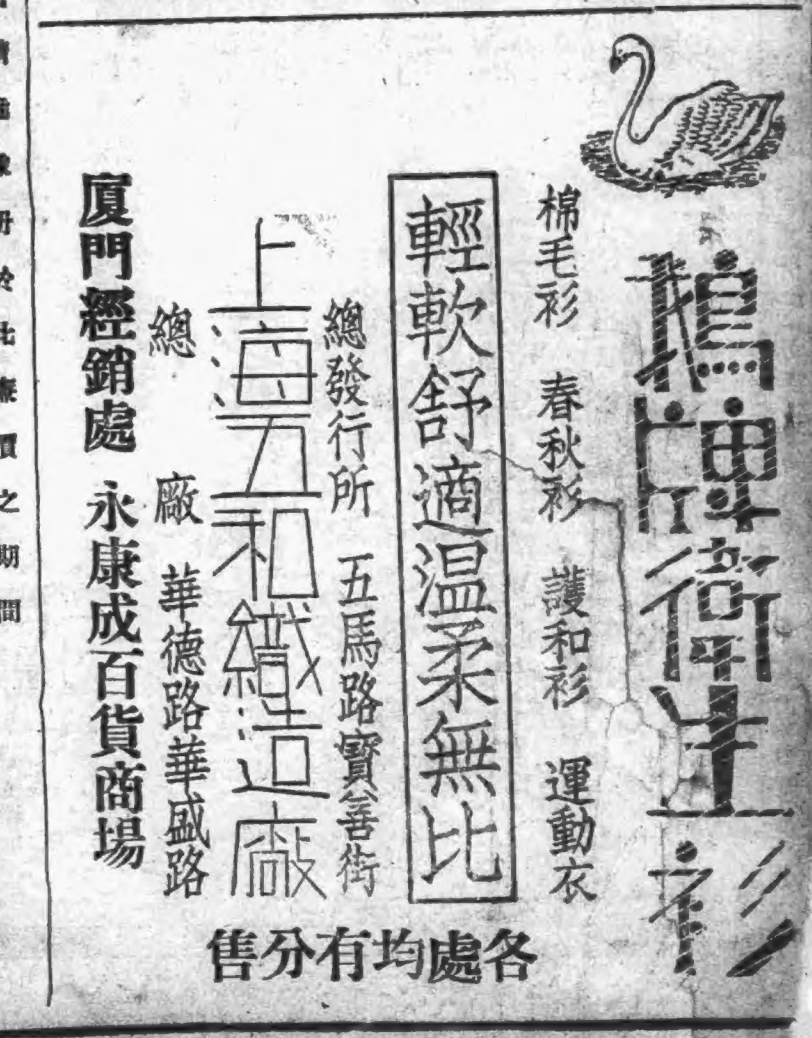 鵝牌衛生衫
棉毛衫 春秋衫 護和衫 運動衣
輕軟舒適溫柔無比
總發行所 五馬路寶善街
上海五和織造廠
總廠 華德路華盛路
廈門經銷處 永康成百貨商場
各處均有分售
於此廉價之期間